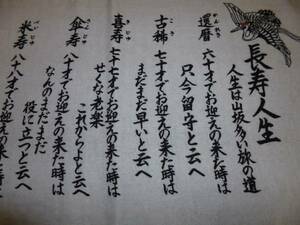 長寿人生
人生は山坂多い旅の道
還暦 六十才でお迎えの来た時は
只今留守と云へ
古稀 七十才でお迎えの来た時は
まだまだ早いと云へ
喜寿 七十七才でお迎えの来た時は
せくな老楽
これからよと云へ
傘寿 八十才でお迎えの来た時は
なんのまだまだ
役に立つと云へ
米寿 八十八才でお迎えの来た時